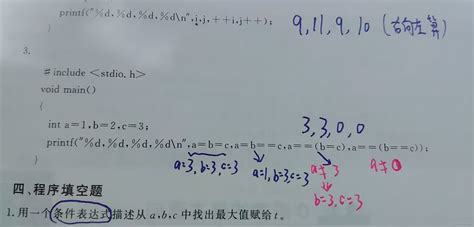 printf("%d,%d,%d,%d\n",i,j,++i,j++); 9,11,9,10 (右向左算)
}
3.
# include <stdio. h>
void main()
{
int a=1,b=2,c=3; 3,3,0,0
printf("%d,%d,%d,%d\n",a=b=c,a=b==c,a==(b=c),a==(b==c));
} a=3,b=3,c=3 a=1,b=3,c=3 a≠3 a≠0
b=3,c=3
四、程序填空题
1. 用一个条件表达式描述从 a,b,c 中找出最大值赋给 t。